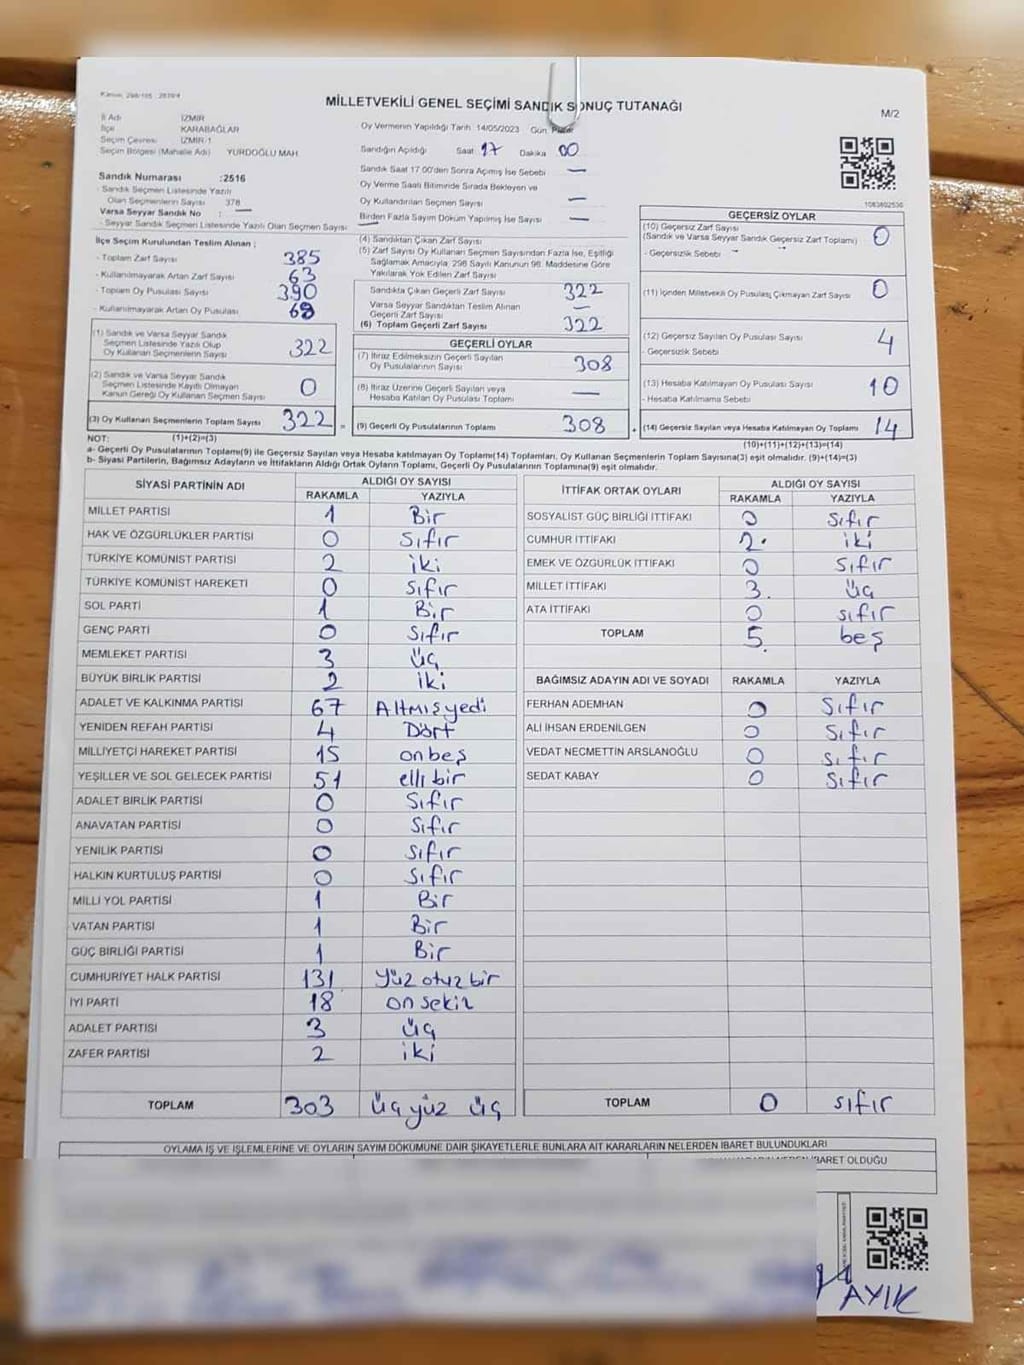 MİLLETVEKİLİ GENEL SEÇİMİ SANDIK SONUÇ TUTANAĞI
M/2
İl Adı İZMİR
İlçe KARABAĞLAR
Seçim Çevresi İZMİR-1
Seçim Bölgesi (Mahalle Adı) YURDOĞLU MAH.
Oy Vermenin Yapıldığı Tarih 14/05/2023 Gün
Sandığın Açıldığı Saat 17 Dakika 00
Sandık Saat 17.00'den Sonra Açımış İse Sebebi —
Oy Verme Saati Bitiminde Sırada Bekleyen ve
Oy Kullandırılan Seçmen Sayısı —
Birden Fazla Sayım Döküm Yapılmış İse Sayısı —
Sandık Numarası :2516
- Sandık Seçmen Listesinde Yazılı
Olan Seçmenlerin Sayısı 378
Varsa Seyyar Sandık No : —
- Seyyar Sandık Seçmen Listesinde Yazılı Olan Seçmen Sayısı —
1083602530
İlçe Seçim Kurulundan Teslim Alınan ;
- Toplam Zarf Sayısı 385
- Kullanılmayarak Artan Zarf Sayısı 63
- Toplam Oy Pusulası Sayısı 390
- Kullanılmayarak Artan Oy Pusulası
(1) Sandık ve Varsa Seyyar Sandık
Seçmen Listesinde Yazılı Olup
Oy Kullanan Seçmenlerin Sayısı 322
(2) Sandık ve Varsa Seyyar Sandık
Seçmen Listesinde Kayıtlı Olmayan
Kanun Gereği Oy Kullanan Seçmen Sayısı 0
(3) Oy Kullanan Seçmenlerin Toplam Sayısı 322 =
(4) Sandıktan Çıkan Zarf Sayısı
(5) Zarf Sayısı Oy Kullanan Seçmen Sayısından Fazla İse, Eşitliği
Sağlamak Amacıyla, 298 Sayılı Kanunun 98. Maddesine Göre
Yakılarak Yok Edilen Zarf Sayısı
Sandıkta Çıkan Geçerli Zarf Sayısı 322
Varsa Seyyar Sandıktan Teslim Alınan
Geçerli Zarf Sayısı —
(6) Toplam Geçerli Zarf Sayısı 322
GEÇERLİ OYLAR
(7) İtiraz Edilmeksizin Geçerli Sayılan
Oy Pusulalarının Sayısı 308
(8) İtiraz Üzerine Geçerli Sayılan veya
Hesaba Katılan Oy Pusulası Toplamı —
(9) Geçerli Oy Pusulalarının Toplamı 308 +
GEÇERSİZ OYLAR
(10) Geçersiz Zarf Sayısı
(Sandık ve Varsa Seyyar Sandık Geçersiz Zarf Toplamı) 0
- Geçersizlik Sebebi
(11) İçinden Milletvekili Oy Pusulası Çıkmayan Zarf Sayısı 0
(12) Geçersiz Sayılan Oy Pusulası Sayısı 4
- Geçersizlik Sebebi
(13) Hesaba Katılmayan Oy Pusulası Sayısı 10
- Hesaba Katılmama Sebebi
(14) Geçersiz Sayılan veya Hesaba Katılmayan Oy Toplamı 14
NOT: (1)+(2)=(3) (10)+(11)+(12)+(13)=(14)
a- Geçerli Oy Pusulalarının Toplamı(9) ile Geçersiz Sayılan veya Hesaba katılmayan Oy Toplamı(14) Toplamları, Oy Kullanan Seçmenlerin Toplam Sayısına(3) eşit olmalıdır. (9)+(14)=(3)
b- Siyasi Partilerin, Bağımsız Adayların ve İttifakların Aldığı Ortak Oyların Toplamı, Geçerli Oy Pusulalarının Toplamına(9) eşit olmalıdır.
SİYASİ PARTİNİN ADI ALDIĞI OY SAYISI
RAKAMLA YAZIYLA
MİLLET PARTİSİ 1 Bir
HAK VE ÖZGÜRLÜKLER PARTİSİ 0 Sıfır
TÜRKİYE KOMÜNİST PARTİSİ 2 iki
TÜRKİYE KOMÜNİST HAREKETİ 0 sıfır
SOL PARTİ 1 Bir
GENÇ PARTİ 0 Sıfır
MEMLEKET PARTİSİ 3 üç
BÜYÜK BİRLİK PARTİSİ 2 iki
ADALET VE KALKINMA PARTİSİ 67 Altmışyedi
YENİDEN REFAH PARTİSİ 4 Dört
MİLLİYETÇİ HAREKET PARTİSİ 15 onbeş
YEŞİLLER VE SOL GELECEK PARTİSİ 51 elli bir
ADALET BİRLİK PARTİSİ 0 Sıfır
ANAVATAN PARTİSİ 0 Sıfır
YENİLİK PARTİSİ 0 Sıfır
HALKIN KURTULUŞ PARTİSİ 0 Sıfır
MİLLİ YOL PARTİSİ 1 Bir
VATAN PARTİSİ 1 Bir
GÜÇ BİRLİĞİ PARTİSİ 1 Bir
CUMHURİYET HALK PARTİSİ 131 Yüz otuz bir
İYİ PARTİ 18 on sekiz
ADALET PARTİSİ 3 üç
ZAFER PARTİSİ 2 iki
TOPLAM 303 üç yüz üç
İTTİFAK ORTAK OYLARI ALDIĞI OY SAYISI
RAKAMLA YAZIYLA
SOSYALİST GÜÇ BİRLİĞİ İTTİFAKI 0 Sıfır
CUMHUR İTTİFAKI 2. iki
EMEK VE ÖZGÜRLÜK İTTİFAKI 0 Sıfır
MİLLET İTTİFAKI 3. üç
ATA İTTİFAKI 0 sıfır
TOPLAM 5. beş
BAĞIMSIZ ADAYIN ADI VE SOYADI RAKAMLA YAZIYLA
FERHAN ADEMHAN 0 Sıfır
ALİ İHSAN ERDENİLGEN 0 Sıfır
VEDAT NECMETTİN ARSLANOĞLU 0 Sıfır
SEDAT KABAY 0 Sıfır
TOPLAM 0 sıfır
OYLAMA İŞ VE İŞLEMLERİNE VE OYLARIN SAYIM DÖKÜMÜNE DAİR ŞİKAYETLERLE BUNLARA AİT KARARLARIN NELERDEN İBARET BULUNDUKLARI
İBARET OLDUĞU
AYIK